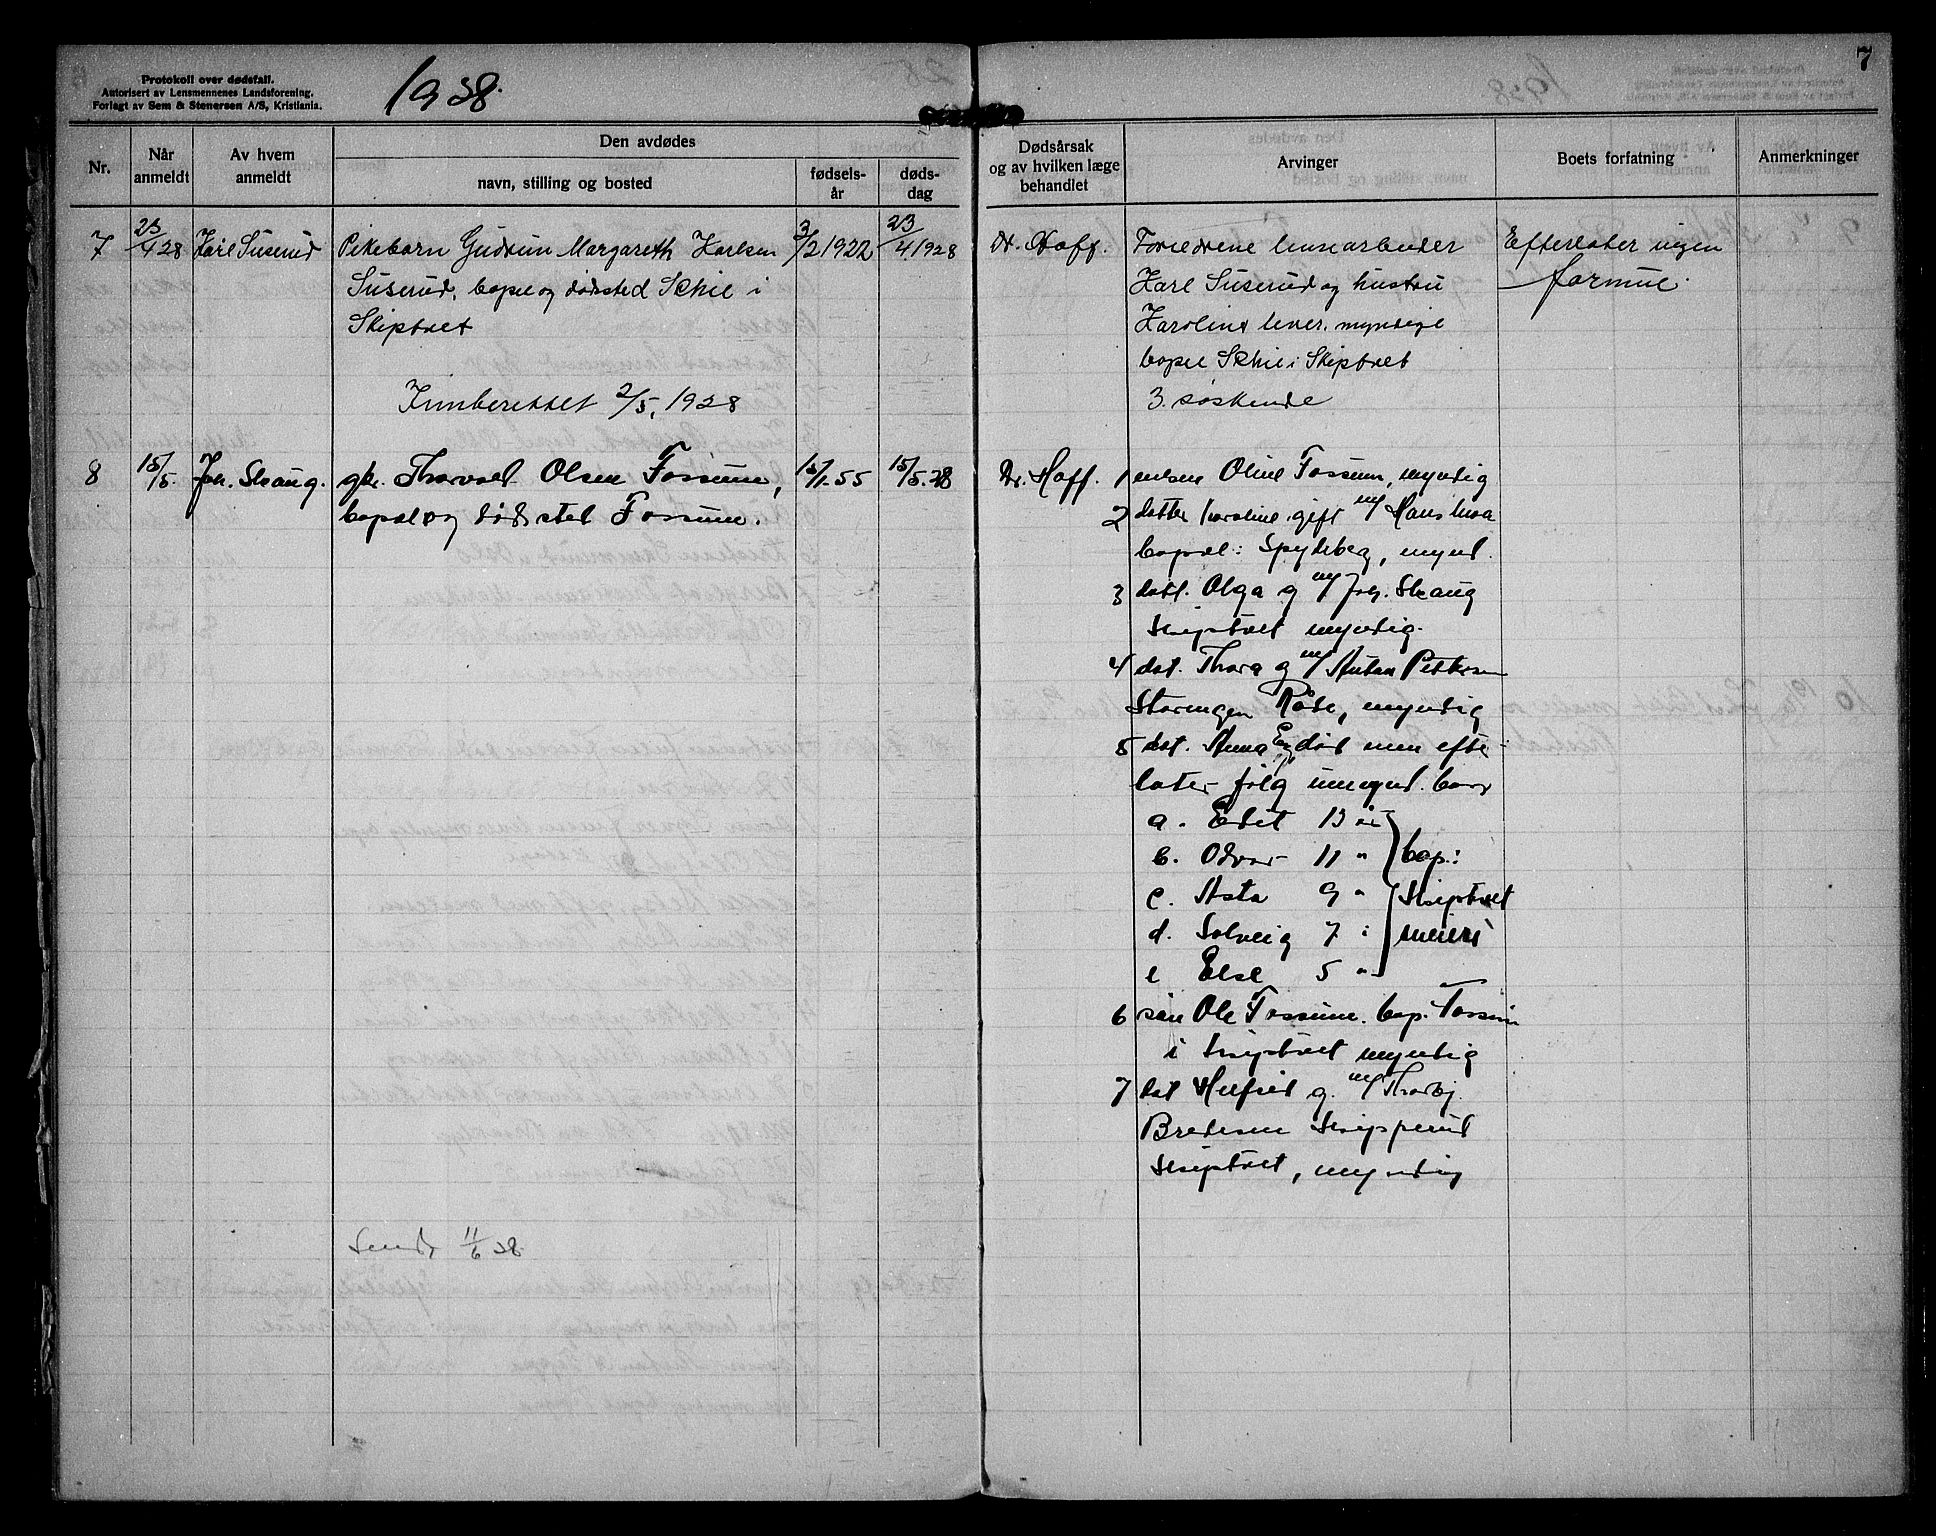 Protokoll over dødsfall.
Autorisert av Lensmennenes Landsforening.
Forlagt av Sem & Stenersen A/S, Kristiania.
1938.
7
Nr.
Når anmeldt
Av hvem anmeldt
Den avdødes
navn, stilling og bosted
fødsels-år
døds-dag
Dødsårsak og av hvilken læge behandlet
Arvinger
Boets forfatning
Anmerkninger
7 23/4 28 Karl Suserud Pikebarn Gudrun Margareth Karlsen 3/2 1922 23/4 1928 Dr. Hoff.
Suserud, bopel og dødsted Skhie i
Skiptvet
Innberettet 2/5, 1928
Foreldrene
Karl Suserud og hustru
Karoline lever, myndige
bopel Skhie i Skiptvet
3. søskende
Efterlater ingen
formue.
8 15/5. Joh. Skaug. gbr. Thorvald Olsen Fossum, 15/1.55 15/5.28 Dr. Hoff.
bopel og dødsted Fossum.
1 enken Oline Fossum, myndig
2 datter Karoline gift m/ Hans Moa
bopel: Spydeberg, mynd.
3 datt. Olga g m/ Joh. Skaug
Skiptvet myndig.
4 dat. Thora g m/ Anton Pettersen
Råde, myndig
5 dat. Anna død men efter-
later følg umynd. barn
a. Edit 13 år
b. Odvar 11 " bop:
c. Asta 9 " Skiptvet
d. Solveig 7 " meieri
e Else 5 "
6 søn Ole Fossum. bop. Fossum
i Skiptvet myndig
7 dat g. m/ Thorbj.
Bredesen Skipperud
Skiptvet, myndig
Sendt 11/6 28.